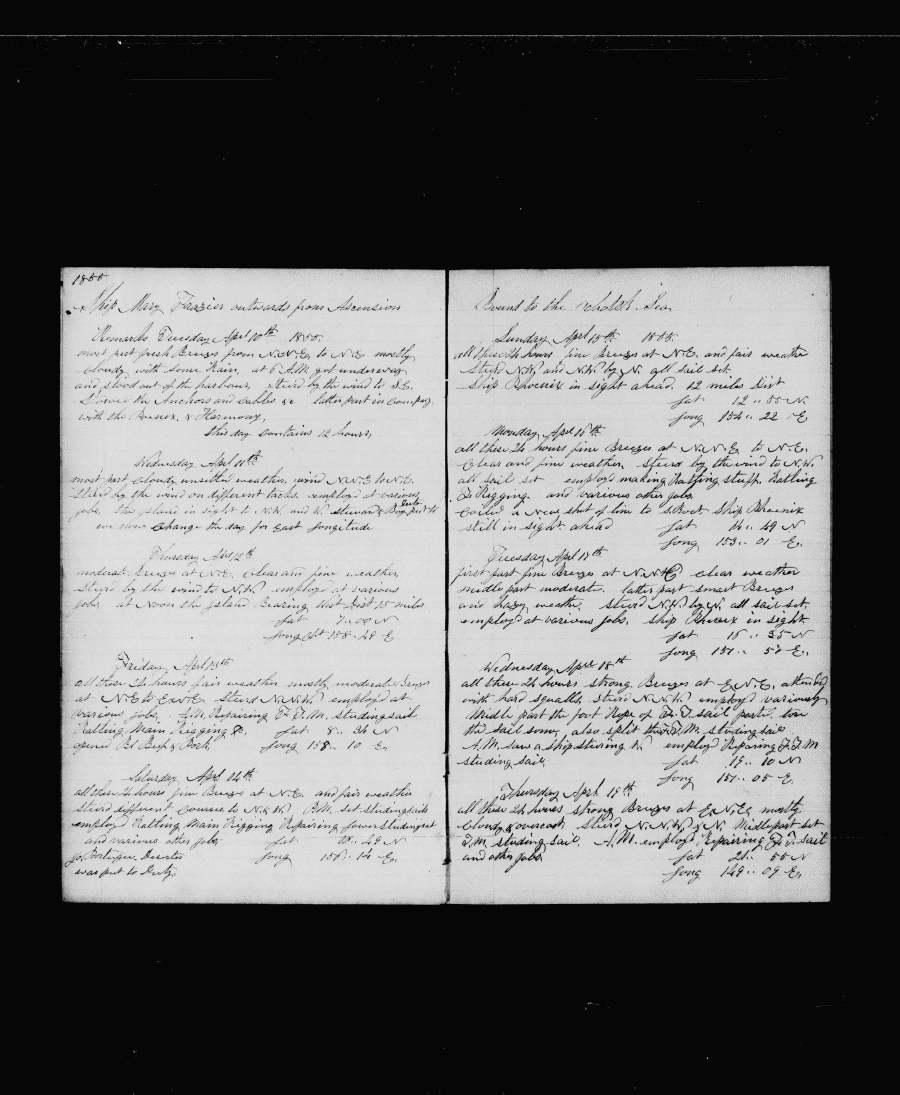 1855
Ship Mary Frazier outwards from Ascension
Remarks Tuesday April 10th 1855
most part fresh Breezes from N.N.E. to N.E. mostly
cloudy with Some Rain, at 6 A.M. got underway
and stood out of the harbour, steerd by the wind to S.E.
Stowed the Anchors and Cables &c latter part in Company
with the & Harmony,
this day contains 12 hours,
Wednesday April 11th
most part Cloudy unsettled weather, wind N.N.E to N.E.
Steerd by the wind on different tacks. employd at various
jobs, the island in sight to N.W. and W steward & Boy put to Duty
we now Change the day for East Longitude
Thursday Aprl 12th
moderate Breezes at N.E. Clear and fine weather,
Steerd by the wind to N.W. employd at various
jobs, at Noon the Island Bearing West Dist 25 miles
Lat 7..00 N
Long 158..29 E
Friday, April 13th
all these 24 hours fair weather mostly moderate Breezes
at N.E to E.N.E. Steerd N.N.W. employd at
various jobs, A.M. Repairing F.T.M. studingsail
Ratling Main Rigging &c Lat 8..34 N
opened Bl Beef & Pork, Long 158..10 E.
Saturday April 14th
all these 24 hours fine Breezes at N.E. and fair weather
steerd different Courses to N & W P.M. set studingsails
employd Ratling Main Rigging Repairing lower studingsail
and various other jobs, Lat 10..49 N
Portugue, Deserter Long 156..14 E.
was put to Duty.
Bound to the Ochotsk Sea
Sunday April 15th 1855.
all these 24 hours fine Breezes at N.E. and fair weather
Steerd N.W. and N.W. by N. all sail set.
Ship Phoenix in sight ahead 12 miles Dist
Lat 12..55 N
Long 154..22 E
Monday April 16th
all these 24 hours fine Breezes at N.N.E. to N.E.
Clear and fine weather, steerd by the wind to N.W.
all sail set employd making Ratling stuff, Ratling
F. Rigging and various other jobs.
Coiled a New shot of line to Boat Ship Phoenix
still in sight ahead Lat 14..49 N
Long 153..01 E.
Tuesday April 17th
first part fine Breezes at N.N.E clear weather
middle part moderate. latter part smart Breezes
and hazy weather. steerd N.W. by N. all sail set.
employd at various jobs, Ship Phoenix in sight
Lat 16..35 N
Long 151..57 E.
Wednesday April 18th
all these 24 hours strong Breezes at E.N.E. attended
with hard squalls, steerd N.N.W. employd variously
Middle part the foot Rope of F.T. sail parted, tore
the sail some, also split the F.T.M. studing sail
A.M. saw a Ship stering N. employd Repairing F.T.M
studing sail Lat 19..10 N
Long 151..05 E.
Thursday April 19th
all these 24 hours strong Breezes at E.N.E. mostly
Cloudy & overcast, Steerd N.N.W. & N. Middle part set
T.M. studing sail, A.M. employd Repairing F.T. sail
and other jobs Lat 21..55 N
Long 149..09 E.